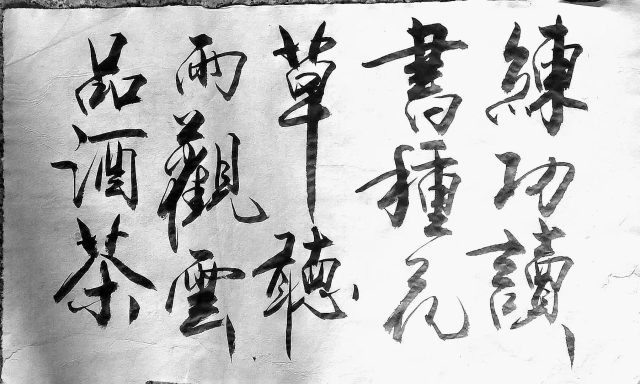 練功讀
書種花
草聽
雨觀雲
品酒茶